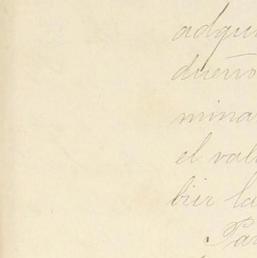 adqui
dueño
mina
el val
bir la
Par